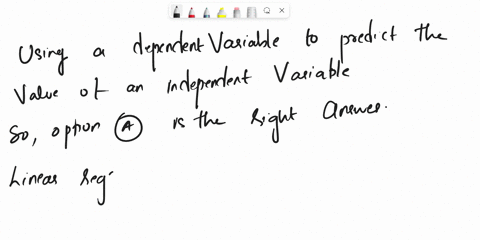 Using a dependent Variable to predict the
Value of an independent Variable
So, option A is the right answer.
Linear reg